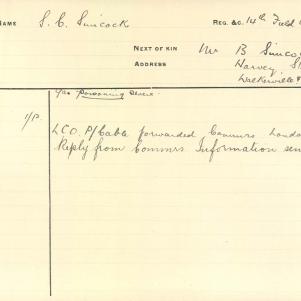 NAME S. C. Simcock REG. &C. 14th Field
NEXT OF KIN Mr B Simco
ADDRESS Harvey S
Walkerville
Gas Poisoning
1/P
LCO. P/Cable forwarded Commrs Londo
Reply from Commrs Information sen